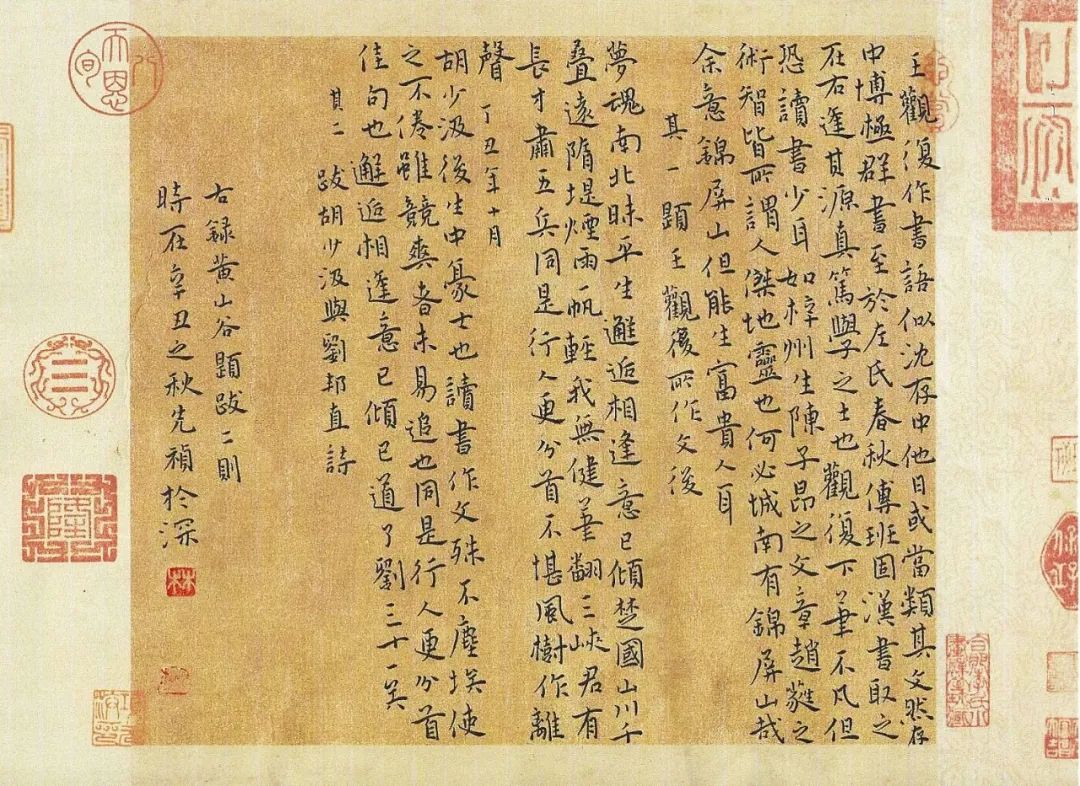 王觀復作書語似沈存中他日或當類其文然存
中博極群書至於左氏春秋傳班固漢書取之
在右逢其源真篤學之士也觀復下筆不凡但
恐讀書少耳如梓州生陳子昂之文章趙蕤之
術智皆所謂人傑地靈也何必城南有錦屏山哉
余意錦屏山但能生富貴人耳
其一 題王觀復所作文後
夢魂南北昧平生邂逅相逢意已傾楚國山川千
疊遠隋堤煙雨一帆輕我無健筆翻三峽君有
長才肅五兵同是行人更分首不堪風樹作離
聲 丁丑年十月
胡少汲後生中豪士也讀書作文殊不塵埃使
之不倦雖競爽者未易追也同是行人更分首
佳句也邂逅相逢意已傾已道了劉三十一矣
其二 跋胡少汲與劉邦直詩
右錄黃山谷題跋二則
時在辛丑之秋先禎於深
林